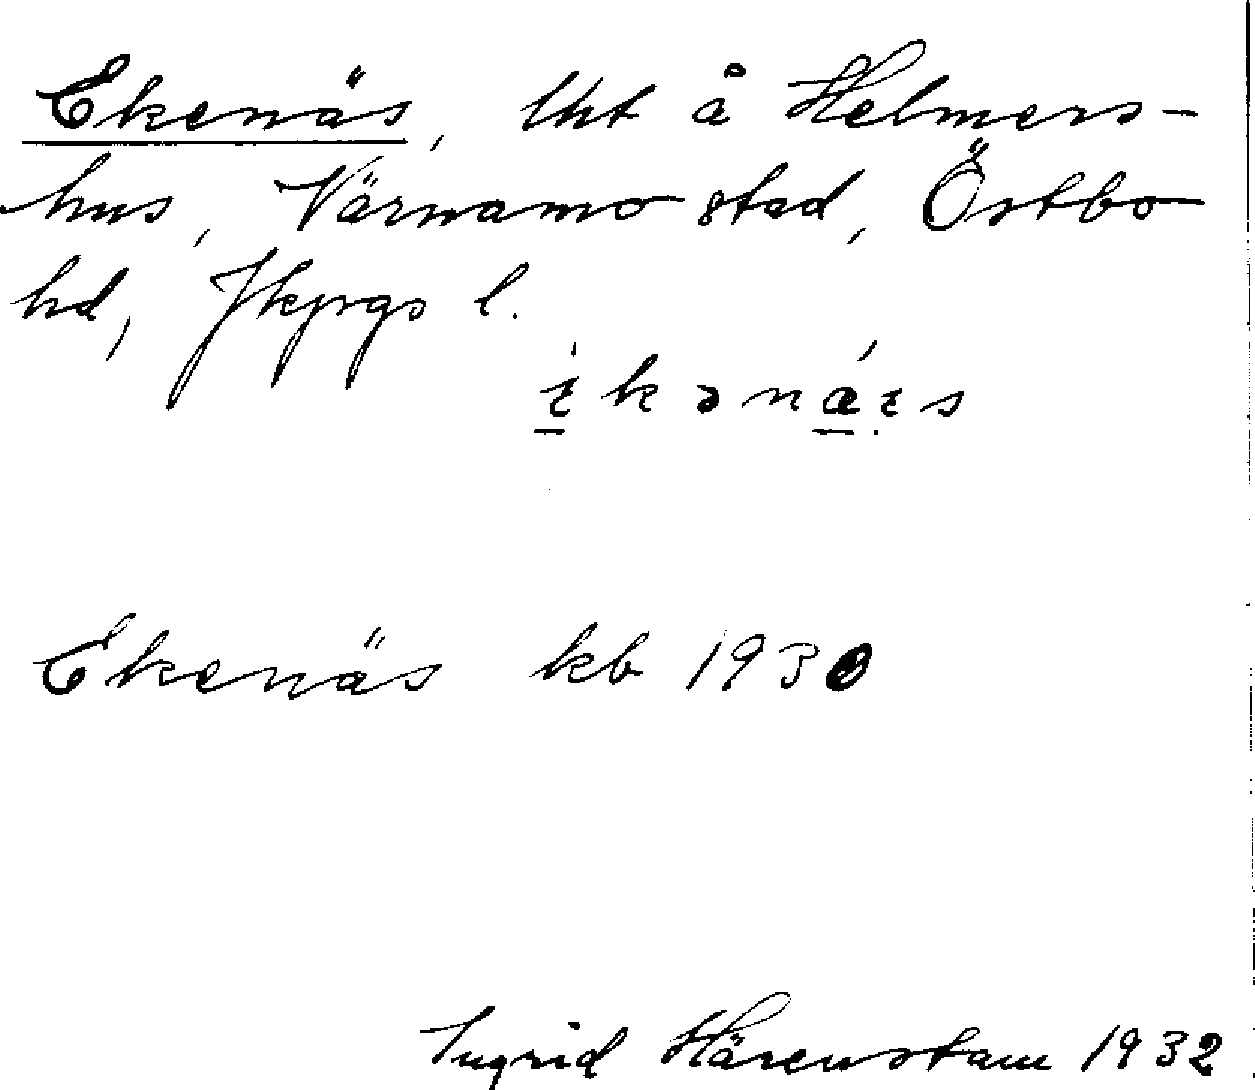 Ekenäs, lht å Helmers-
hus, Värnamo stad, Östbo
hd, Jkpgs l.
Ekenäs kb 1930
Ingrid Härenstam 1932